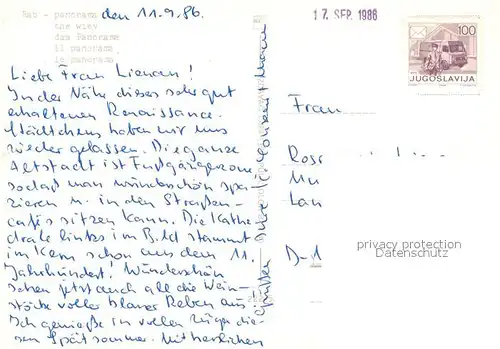 Rab - panorama
the wiev
das Panorama
il panorama
le panorama
den 11.9.86.
Liebe Frau Lieman!
In der Nähe dieses sehr gut
erhaltenen Renaissance-
städtchens haben wir uns
nieder gelassen. Die ganze
Altstadt ist Fußgängerzone,
sodaß man wunderschön spa-
zieren u. in den Straßen-
cafés sitzen kann. Die Kathe
drale links im Bild stammt
im Kern schon aus dem 11.
Jahrhundert! Wunderschön
sehen jetzt auch all die Wein-
stöcke voller blauer Reben aus!
Ich genieße in vollen Zügen die-
sen Spätsommer. Mit herzlichen
Grüßen Ihre
17 SEP. 1986
100
JUGOSLAVIJA
Frau
Ros
Mu
Lan
D-1
privacy protection
Datenschutz